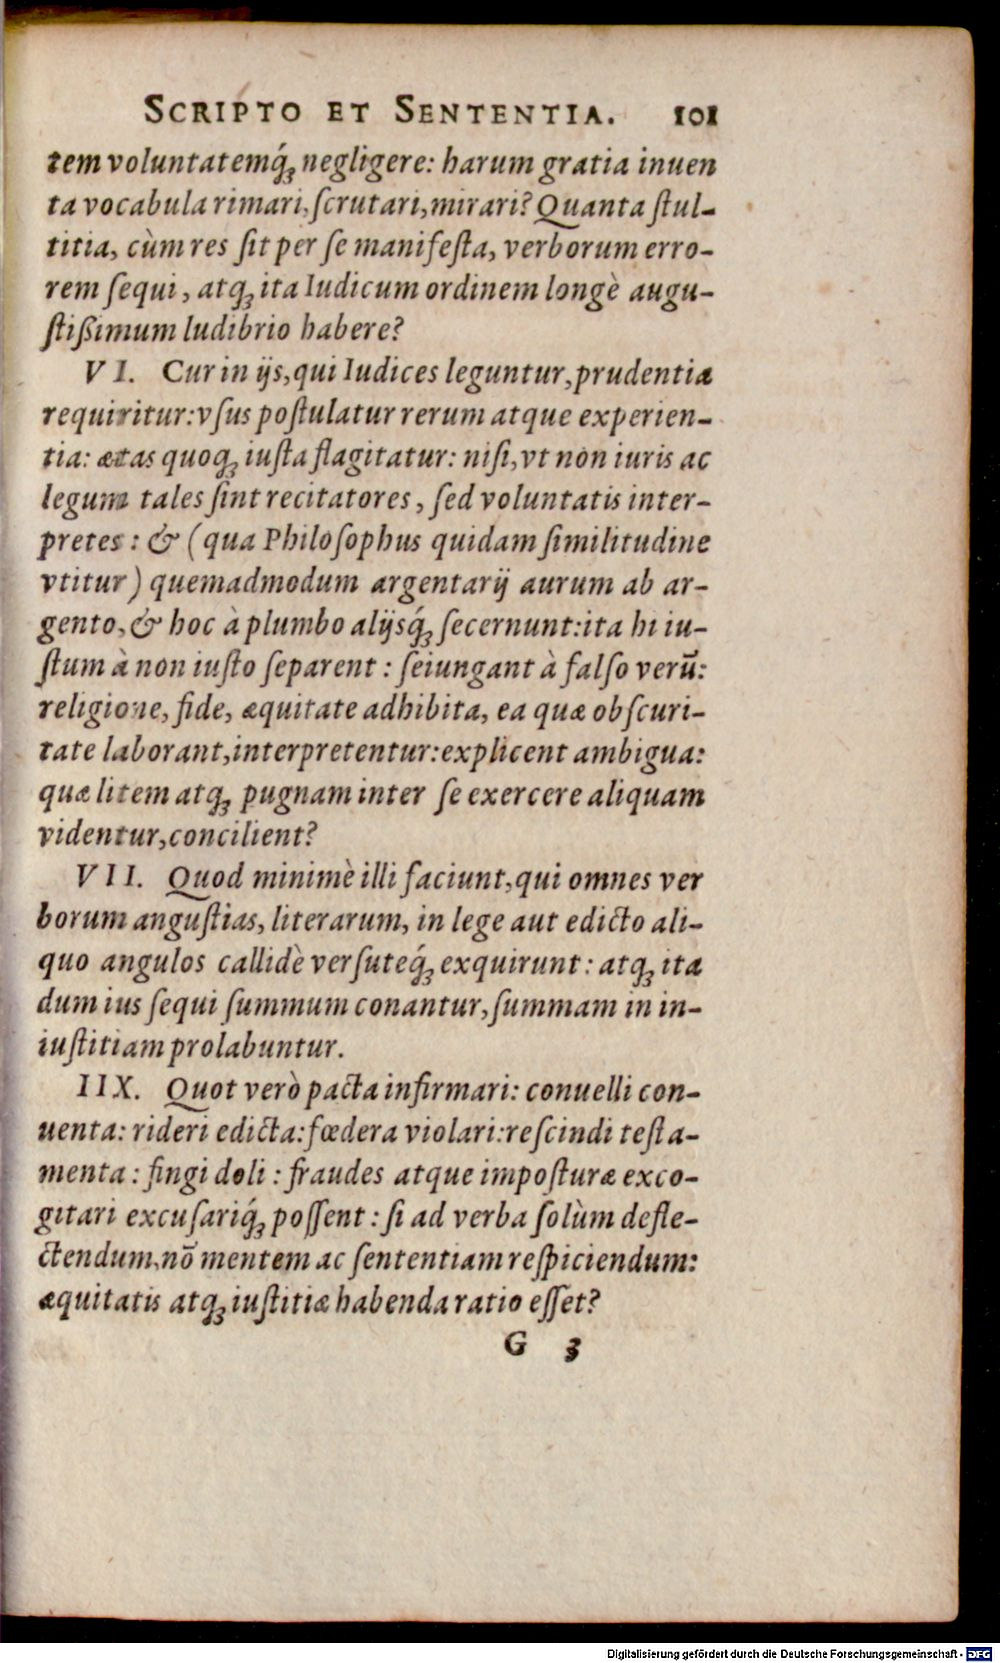 SCRIPTO ET SENTENTIA. 101
tem voluntatemq́ꝫ negligere: harum gratia inuen
ta vocabula rimari, ſcrutari, mirari? Quanta ſtul-
titia, cùm res ſit per ſe manifeſta, verborum erro-
rem ſequi, atqꝫ ita Iudicum ordinem longè augu-
ſtißimum ludibrio habere?
VI. Cur in ijs, qui Iudices leguntur, prudentiæ
requiritur: vſus poſtulatur rerum atque experien-
tia: ætas quoqꝫ iuſta flagitatur: niſi, vt non iuris ac
legum tales ſint recitatores, ſed voluntatis inter-
pretes: & (qua Philoſophus quidam ſimilitudine
vtitur) quemadmodum argentarij aurum ab ar-
gento, & hoc à plumbo alijsq́ꝫ ſecernunt: ita hi iu-
ſtum à non iuſto ſeparent: ſeiungant à falſo verũ:
religione, fide, æquitate adhibita, ea quæ obſcuri-
tate laborant, interpretentur: explicent ambigua:
quæ litem atqꝫ pugnam inter ſe exercere aliquam
videntur, concilient?
VII. Quod minimè illi faciunt, qui omnes ver
borum anguſtias, literarum, in lege aut edicto ali-
quo angulos callidè verſuteq́ꝫ exquirunt: atqꝫ ita
dum ius ſequi ſummum conantur, ſummam in in-
iuſtitiam prolabuntur.
IIX. Quot verò pacta infirmari: conuelli con-
uenta: rideri edicta: fœdera violari: reſcindi teſta-
menta: fingi doli: fraudes atque impoſturæ exco-
gitari excuſariq́ꝫ poſſent: ſi ad verba ſolùm defle-
ctendum, nõ mentem ac ſententiam reſpiciendum:
æquitatis atqꝫ iuſtitiæ habenda ratio eſſet?
G 3
Digitalisierung gefördert durch die Deutsche Forschungsgemeinschaft - DFG